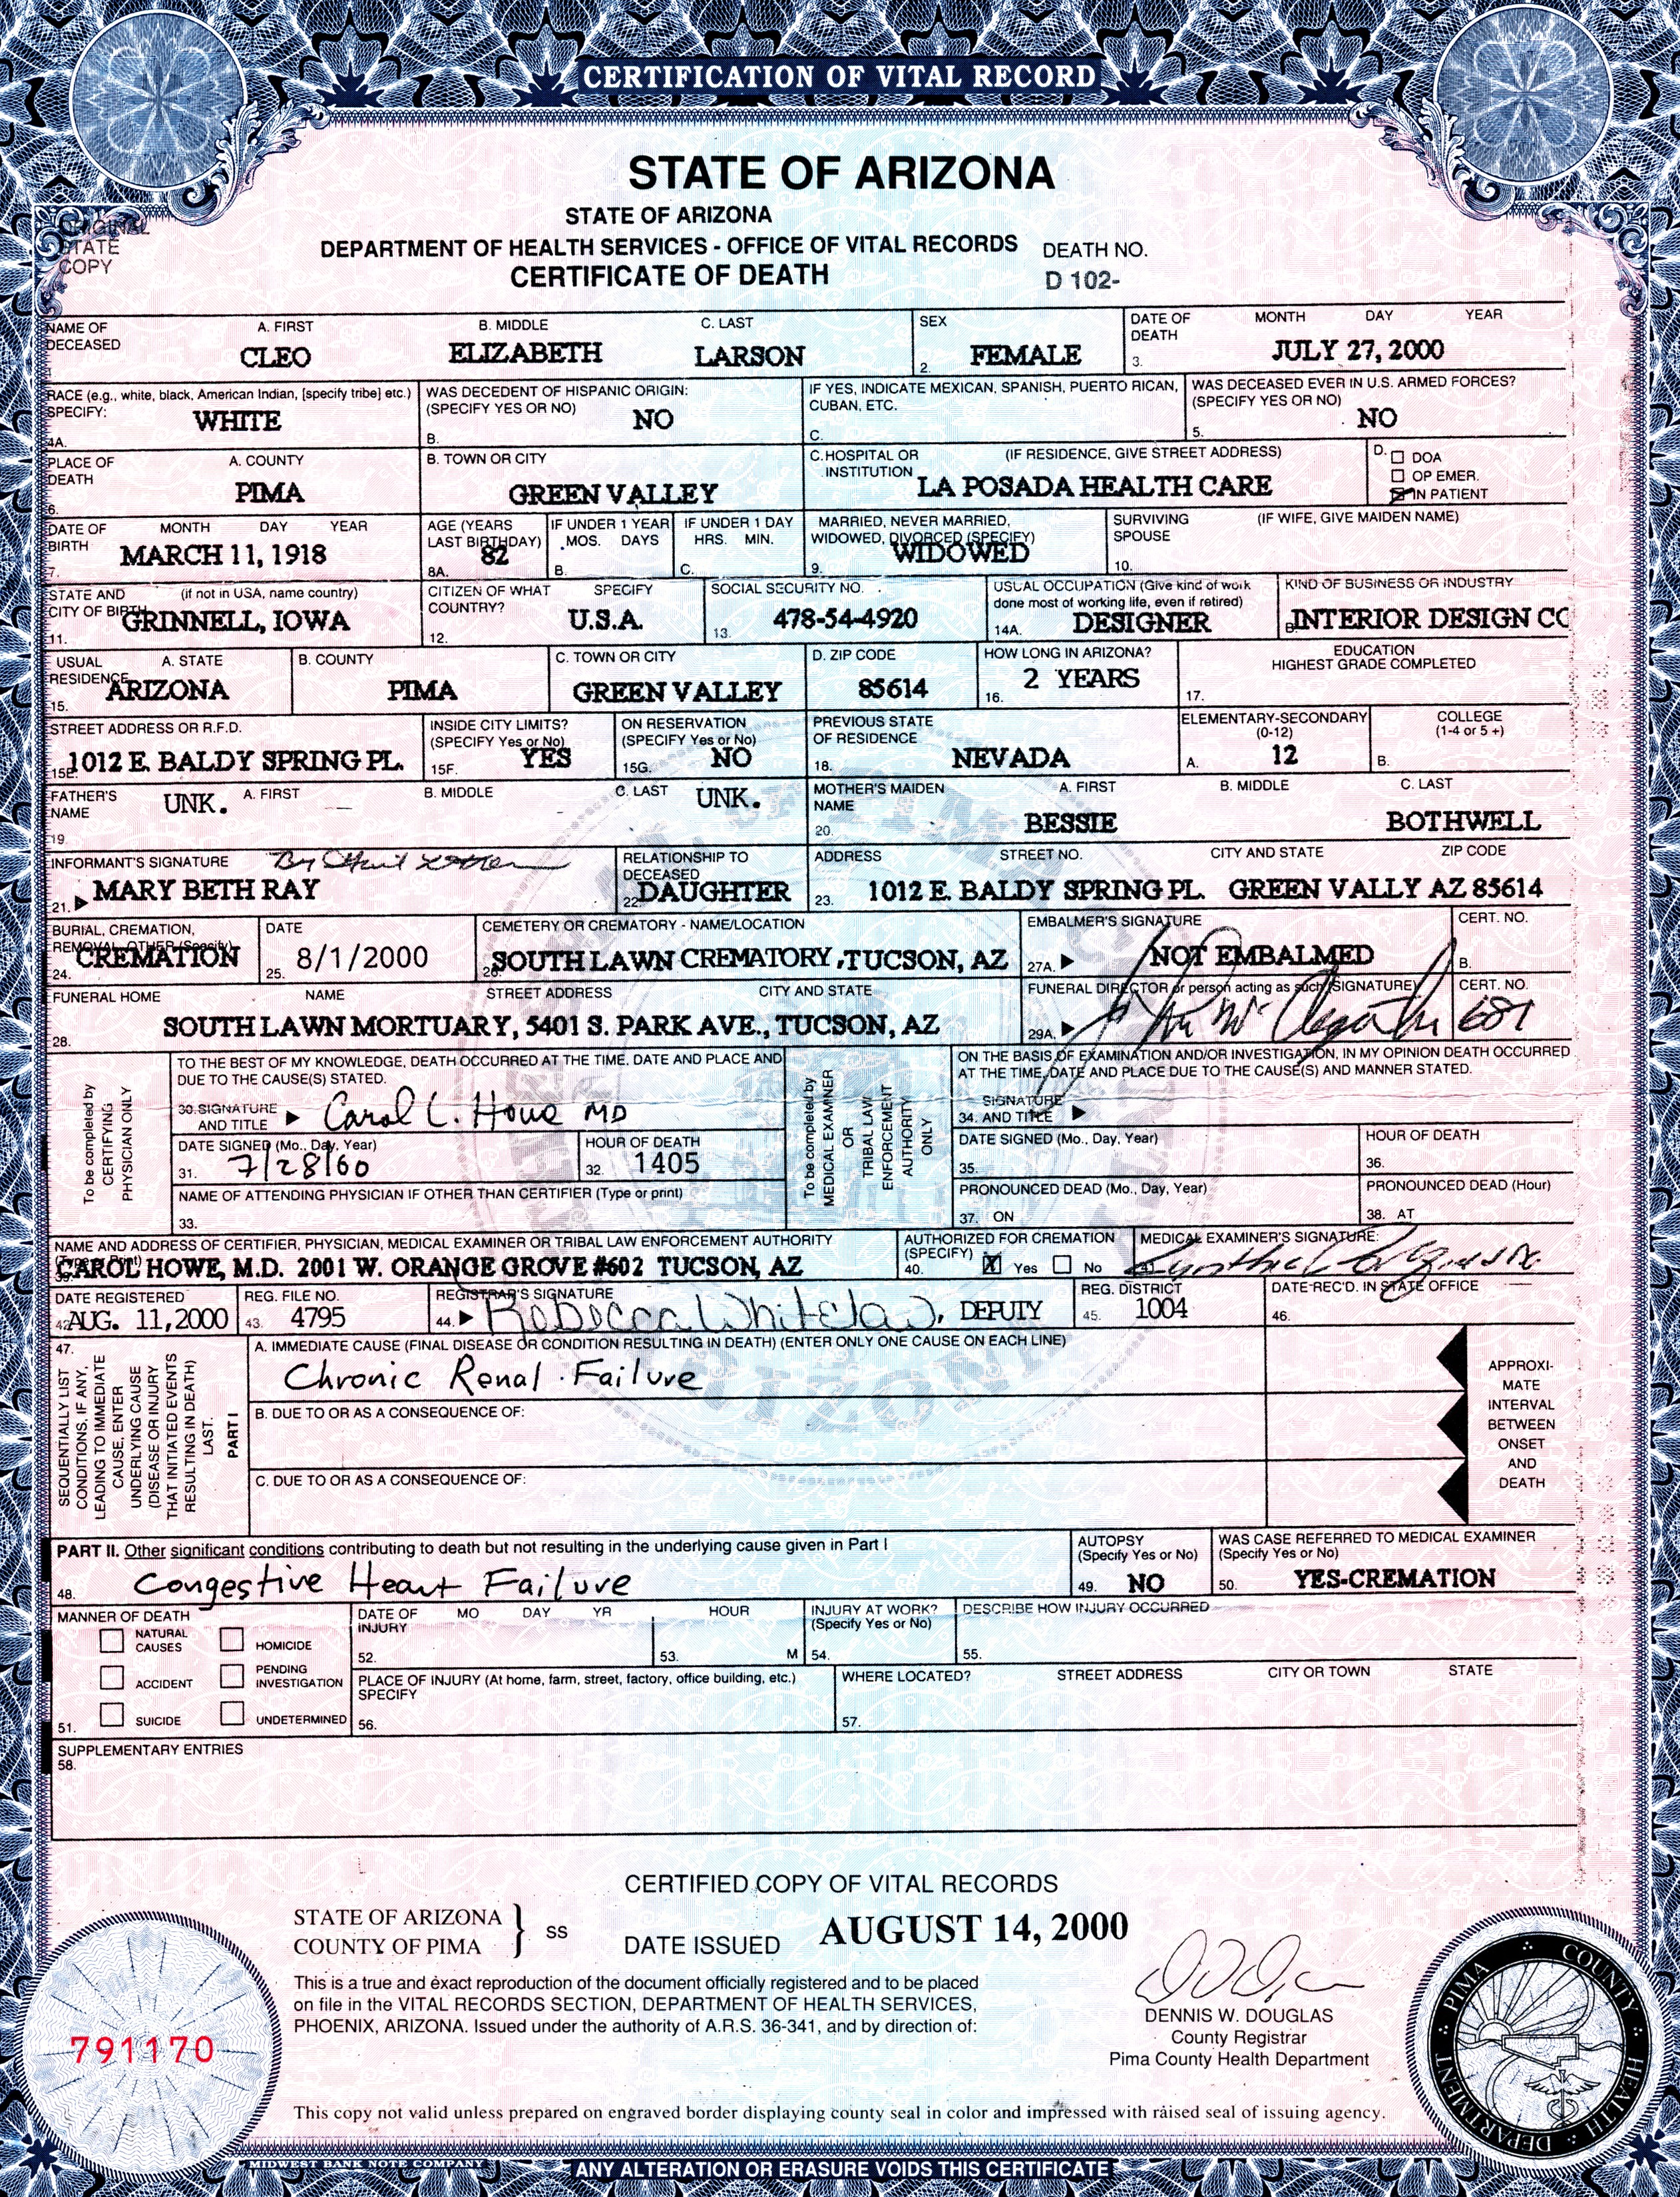 CERTIFICATION OF VITAL RECORD
STATE OF ARIZONA
STATE OF ARIZONA
DEPARTMENT OF HEALTH SERVICES - OFFICE OF VITAL RECORDS
CERTIFICATE OF DEATH
ORIGINAL
STATE
COPY
DEATH NO.
D 102-
NAME OF DECEASED A. FIRST B. MIDDLE C. LAST
1. CLEO ELIZABETH LARSON
SEX
2. FEMALE
DATE OF DEATH MONTH DAY YEAR
3. JULY 27, 2000
RACE (e.g., white, black, American Indian, [specify tribe] etc.) SPECIFY:
4A. WHITE
WAS DECEDENT OF HISPANIC ORIGIN: (SPECIFY YES OR NO)
B. NO
IF YES, INDICATE MEXICAN, SPANISH, PUERTO RICAN, CUBAN, ETC.
C.
WAS DECEASED EVER IN U.S. ARMED FORCES? (SPECIFY YES OR NO)
5. NO
PLACE OF DEATH A. COUNTY
6. PIMA
B. TOWN OR CITY
GREEN VALLEY
C. HOSPITAL OR INSTITUTION (IF RESIDENCE, GIVE STREET ADDRESS)
LA POSADA HEALTH CARE
D. DOA
OP EMER.
IN PATIENT
DATE OF BIRTH MONTH DAY YEAR
7. MARCH 11, 1918
AGE (YEARS LAST BIRTHDAY)
8A. 82
IF UNDER 1 YEAR MOS. DAYS
B.
IF UNDER 1 DAY HRS. MIN.
C.
MARRIED, NEVER MARRIED, WIDOWED, DIVORCED (SPECIFY)
9. WIDOWED
SURVIVING SPOUSE (IF WIFE, GIVE MAIDEN NAME)
10.
STATE AND CITY OF BIRTH (if not in USA, name country)
11. GRINNELL, IOWA
CITIZEN OF WHAT COUNTRY? SPECIFY
12. U.S.A.
SOCIAL SECURITY NO.
13. 478-54-4920
USUAL OCCUPATION (Give kind of work done most of working life, even if retired)
14A. DESIGNER
KIND OF BUSINESS OR INDUSTRY
B. INTERIOR DESIGN CO
USUAL RESIDENCE A. STATE
15. ARIZONA
B. COUNTY
PIMA
C. TOWN OR CITY
GREEN VALLEY
D. ZIP CODE
85614
HOW LONG IN ARIZONA?
16. 2 YEARS
EDUCATION
HIGHEST GRADE COMPLETED
17.
STREET ADDRESS OR R.F.D.
15E. 1012 E. BALDY SPRING PL.
INSIDE CITY LIMITS? (SPECIFY Yes or No)
15F. YES
ON RESERVATION (SPECIFY Yes or No)
15G. NO
PREVIOUS STATE OF RESIDENCE
18. NEVADA
ELEMENTARY-SECONDARY (0-12)
A. 12
COLLEGE (1-4 or 5 +)
B.
FATHER'S NAME A. FIRST B. MIDDLE C. LAST
19. UNK. UNK.
MOTHER'S MAIDEN NAME A. FIRST B. MIDDLE C. LAST
20. BESSIE BOTHWELL
INFORMANT'S SIGNATURE By
21. MARY BETH RAY
RELATIONSHIP TO DECEASED
22. DAUGHTER
ADDRESS STREET NO. CITY AND STATE ZIP CODE
23. 1012 E. BALDY SPRING PL. GREEN VALLY AZ 85614
BURIAL, CREMATION, REMOVAL, OTHER (Specify)
24. CREMATION
DATE
25. 8/1/2000
CEMETERY OR CREMATORY - NAME/LOCATION
26. SOUTH LAWN CREMATORY, TUCSON, AZ
EMBALMER'S SIGNATURE
27A. NOT EMBALMED
CERT. NO.
B.
FUNERAL HOME NAME STREET ADDRESS CITY AND STATE
28. SOUTH LAWN MORTUARY, 5401 S. PARK AVE., TUCSON, AZ
FUNERAL DIRECTOR or person acting as such (SIGNATURE)
29A.
CERT. NO.
681
To be completed by CERTIFYING PHYSICIAN ONLY
TO THE BEST OF MY KNOWLEDGE, DEATH OCCURRED AT THE TIME, DATE AND PLACE AND DUE TO THE CAUSE(S) STATED.
30. SIGNATURE AND TITLE Carol L. Howe MD
DATE SIGNED (Mo., Day, Year)
31. 7/28/00
HOUR OF DEATH
32. 1405
NAME OF ATTENDING PHYSICIAN IF OTHER THAN CERTIFIER (Type or print)
33.
To be completed by MEDICAL EXAMINER OR TRIBAL LAW ENFORCEMENT AUTHORITY ONLY
ON THE BASIS OF EXAMINATION AND/OR INVESTIGATION, IN MY OPINION DEATH OCCURRED AT THE TIME, DATE AND PLACE DUE TO THE CAUSE(S) AND MANNER STATED.
SIGNATURE
34. AND TITLE
DATE SIGNED (Mo., Day, Year)
35.
HOUR OF DEATH
36.
PRONOUNCED DEAD (Mo., Day, Year)
37. ON
PRONOUNCED DEAD (Hour)
38. AT
NAME AND ADDRESS OF CERTIFIER, PHYSICIAN, MEDICAL EXAMINER OR TRIBAL LAW ENFORCEMENT AUTHORITY (Type or Print)
39. CAROL HOWE, M.D. 2001 W. ORANGE GROVE #602 TUCSON, AZ
AUTHORIZED FOR CREMATION (SPECIFY)
40. X Yes No
MEDICAL EXAMINER'S SIGNATURE:
DATE REGISTERED
42. AUG. 11, 2000
REG. FILE NO.
43. 4795
REGISTRAR'S SIGNATURE
44. Rebecca Whitelaw, DEPUTY
REG. DISTRICT
45. 1004
DATE REC'D. IN STATE OFFICE
46.
47.
SEQUENTIALLY LIST CONDITIONS, IF ANY, LEADING TO IMMEDIATE CAUSE, ENTER UNDERLYING CAUSE (DISEASE OR INJURY THAT INITIATED EVENTS RESULTING IN DEATH) LAST.
PART I
A. IMMEDIATE CAUSE (FINAL DISEASE OR CONDITION RESULTING IN DEATH) (ENTER ONLY ONE CAUSE ON EACH LINE)
Chronic Renal Failure
B. DUE TO OR AS A CONSEQUENCE OF:
C. DUE TO OR AS A CONSEQUENCE OF:
APPROXI-
MATE
INTERVAL
BETWEEN
ONSET
AND
DEATH
PART II. Other significant conditions contributing to death but not resulting in the underlying cause given in Part I
48. Congestive Heart Failure
AUTOPSY (Specify Yes or No)
49. NO
WAS CASE REFERRED TO MEDICAL EXAMINER (Specify Yes or No)
50. YES-CREMATION
MANNER OF DEATH
NATURAL CAUSES HOMICIDE
ACCIDENT PENDING INVESTIGATION
51. SUICIDE UNDETERMINED
DATE OF INJURY MO DAY YR
52.
HOUR
53. M
INJURY AT WORK? (Specify Yes or No)
54.
DESCRIBE HOW INJURY OCCURRED
55.
PLACE OF INJURY (At home, farm, street, factory, office building, etc.) SPECIFY
56.
WHERE LOCATED? STREET ADDRESS CITY OR TOWN STATE
57.
SUPPLEMENTARY ENTRIES
58.
CERTIFIED COPY OF VITAL RECORDS
STATE OF ARIZONA
COUNTY OF PIMA
ss
DATE ISSUED AUGUST 14, 2000
This is a true and exact reproduction of the document officially registered and to be placed
on file in the VITAL RECORDS SECTION, DEPARTMENT OF HEALTH SERVICES,
PHOENIX, ARIZONA. Issued under the authority of A.R.S. 36-341, and by direction of:
DENNIS W. DOUGLAS
County Registrar
Pima County Health Department
791170
PIMA COUNTY HEALTH DEPARTMENT
This copy not valid unless prepared on engraved border displaying county seal in color and impressed with raised seal of issuing agency.
MIDWEST BANK NOTE COMPANY
ANY ALTERATION OR ERASURE VOIDS THIS CERTIFICATE